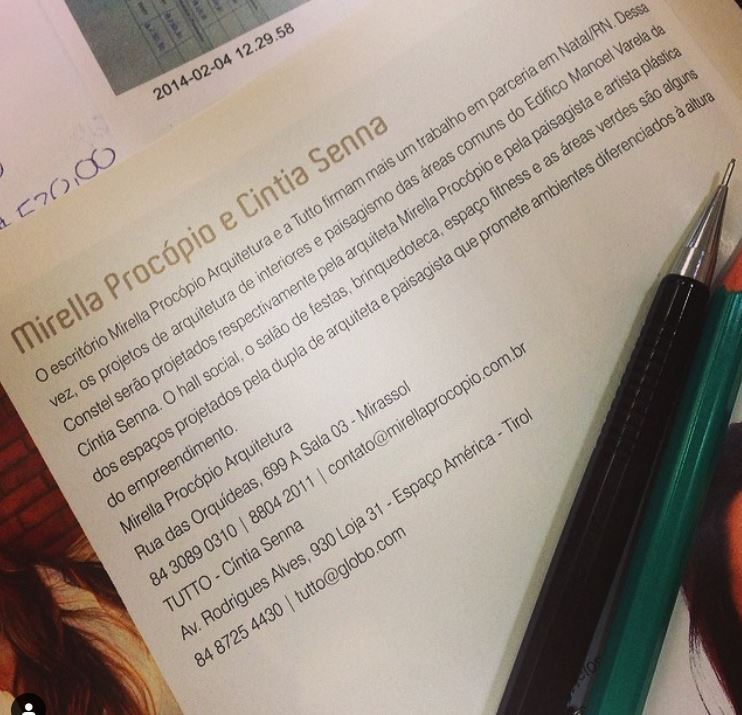 2014-02-04 12.29.58
570,00
Mirella Procópio e Cintia Senna
O escritório Mirella Procópio Arquitetura e a Tutto firmam mais um trabalho em parceria em Natal/RN. Dessa
vez, os projetos de arquitetura de interiores e paisagismo das áreas comuns do Edifico Manoel Varela da
Constel serão projetados respectivamente pela arquiteta Mirella Procópio e pela paisagista e artista plástica
Cíntia Senna. O hall social, o salão de festas, brinquedoteca, espaço fitness e as áreas verdes são alguns
dos espaços projetados pela dupla de arquiteta e paisagista que promete ambientes diferenciados à altura
do empreendimento.
Mirella Procópio Arquitetura
Rua das Orquídeas, 699 A Sala 03 - Mirassol
84 3089 0310 | 8804 2011 | contato@mirellaprocopio.com.br
TUTTO - Cíntia Senna
Av. Rodrigues Alves, 930 Loja 31 - Espaço América - Tirol
84 8725 4430 | tutto@globo.com